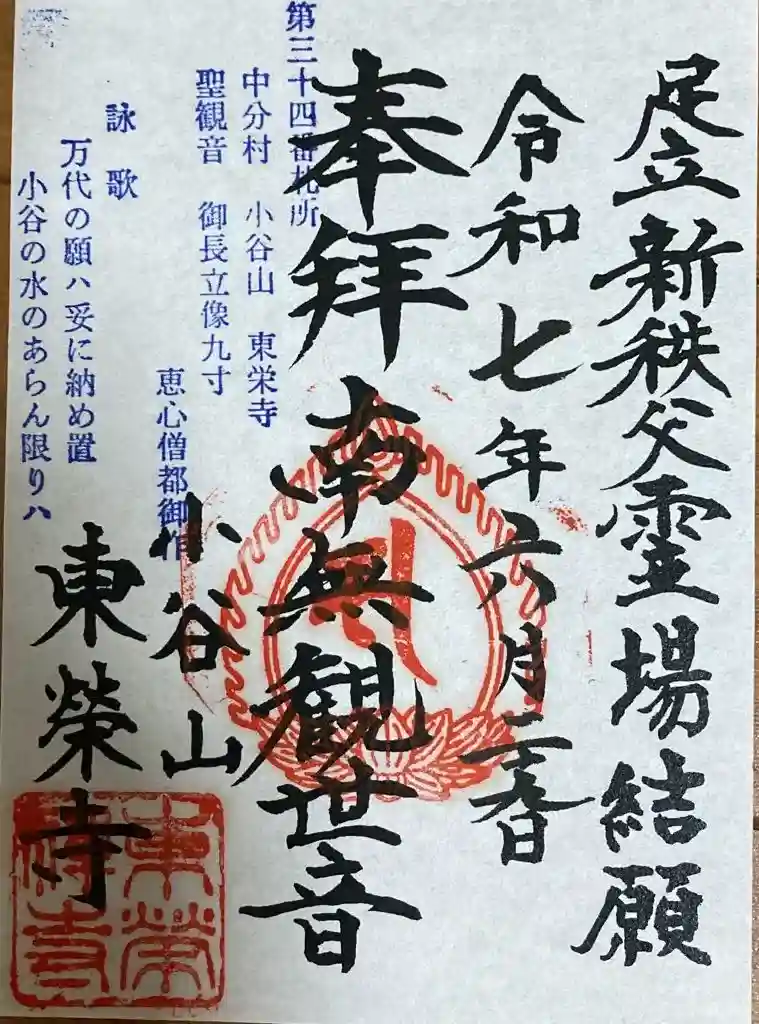 足立新秩父霊場結願
令和七年六月二十八日
奉拝 南無観世音
小谷山
東榮寺
第三十四番札所
中分村 小谷山 東栄寺
聖観音 御長立像九寸
恵心僧都御作
詠歌
万代の願ハ妥に納め置
小谷の水のあらん限りハ
東榮
禅寺